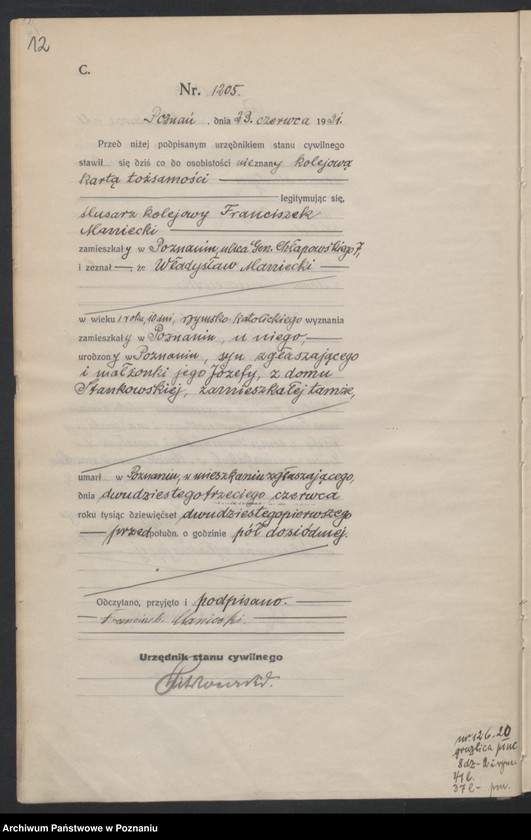 12
C.
Nr. 1205.
Poznań, dnia 23. czerwca 1921.
Przed niżej podpisanym urzędnikiem stanu cywilnego
stawił się dziś co do osobistości nieznany kolejową
kartą tożsamości
legitymując się,
ślusarz kolejowy Franciszek
Maniecki
zamieszkały w Poznaniu, ulica Gen. Chłapowskiego 7,
i zeznał, że Władysław Maniecki
w wieku 1 roku, 10 dni, rzymsko-katolickiego wyznania
zamieszkały w Poznaniu, u niego,
urodzony w Poznaniu, syn zgłaszającego
i małżonki jego Józefy, z domu
Stankowskiej, zamieszkałej tamże,
umarł w Poznaniu, w mieszkaniu zgłaszającego,
dnia dwudziestego trzeciego czerwca
roku tysiąc dziewięćset dwudziestego pierwszego
przedpołudn. o godzinie pół do siódmej.
Odczytano, przyjęto i podpisano.
Franciszek Maniecki.
Urzędnik stanu cywilnego
nr. 12 6. 20
gruźlica płuc
Archiwum Państwowe w Poznaniu